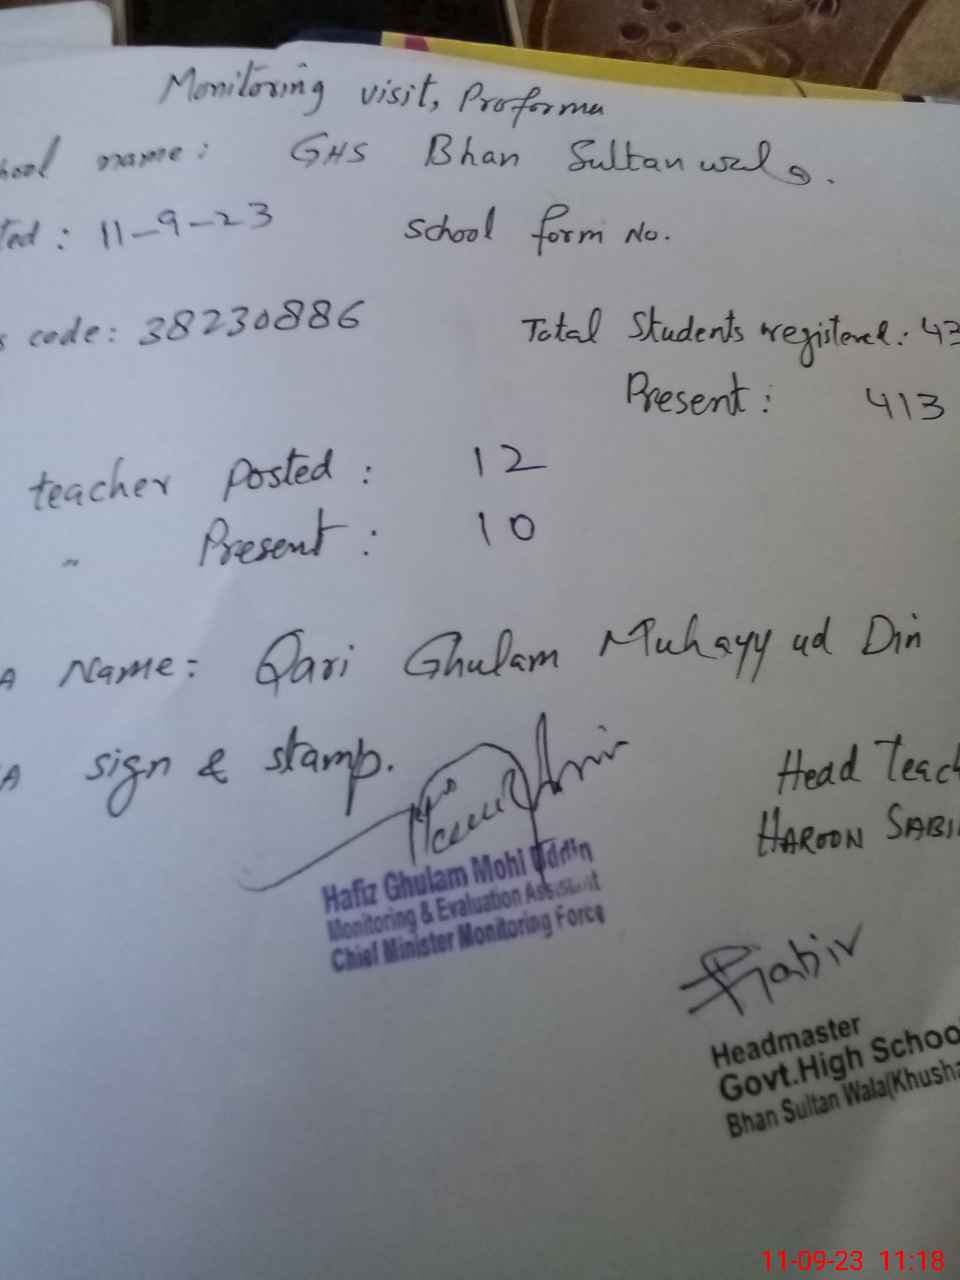 Monitoring visit, Proforma
hool name: GHS Bhan Sultan wala.
ted: 11-9-23 School form No.
s code: 38230886 Total Students registered: 43
Present: 413
teacher Posted: 12
" Present: 10
A Name: Qari Ghulam Muhayy ud Din
A sign & stamp.
Head Teach
HAROON SABI
Hafiz Ghulam Mohi Uddin
Monitoring & Evaluation Assistant
Chief Minister Monitoring Force
Sabir
Headmaster
Govt.High Schoo
Bhan Sultan Wala(Khusha
11-09-23 11:18